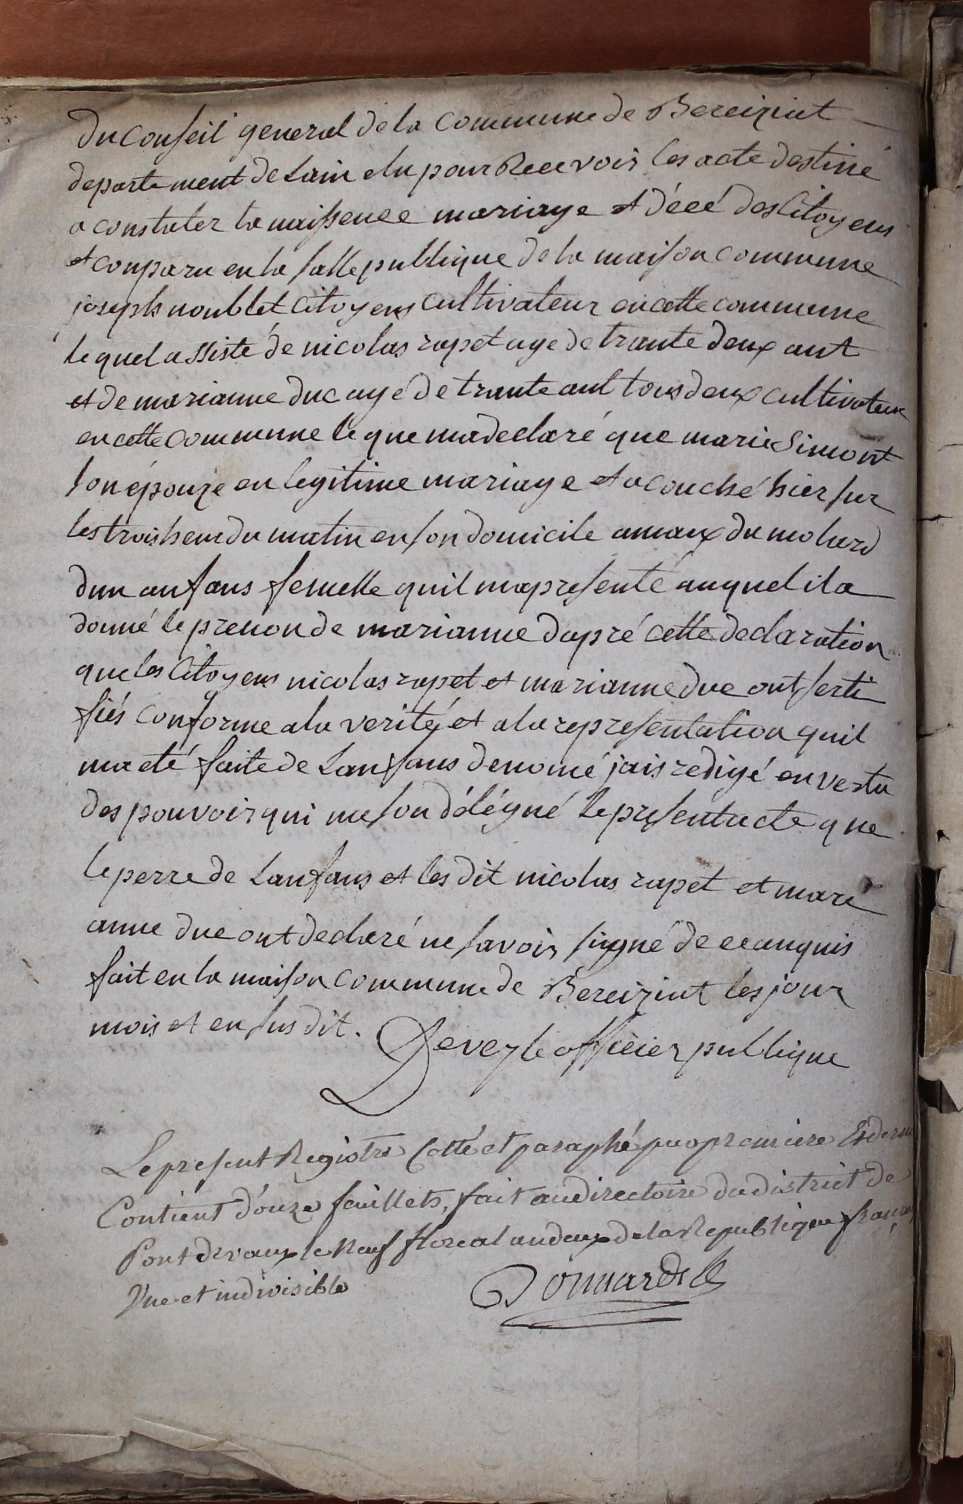 du conseil general de la commune de Bereizint
departement de Lain elu pour Recevoir les acte destiné
a constater la naissence mariage et décé des Citoyens
et conparu en la salle publique de la maison commune
joseph noublet Citoyens cultivateur en cette commune
lequel assisté de nicolas rapet agé de trante deux ant
et de marianne duc agé de trante ant tous deux cultivateur
en cette commune le que ma declaré que marie Simont
son épouze en legitime mariage et acouché hier sur
les trois heur du matin en son domicile amaux du molard
dun anfans femelle quil ma presenté auquel il a
donné le prenon de marianne dapré cette declaration
que les Citoyens nicolas rapet et marianne duc ont serti
fiés conforme a la verité et a la representation quil
ma eté faite de Lanfans denomé jais redigé en vertu
des pouvoir qui me son délégué le present acte que
le perre de Lanfans et les dit nicolas rapet et mari
anne duc ont declaré ne savoir signé de ce anquis
fait en la maison commune de Bereizint les jour
mois et en susdit.
Deveyle officier publique
Le present Registre Cotté et paraphé par premiere Et derni
Contient douze feuillets, fait au directoire du district de
Pont devaux le Neuf floreal an deux de la Republique francai
Une et indivisible